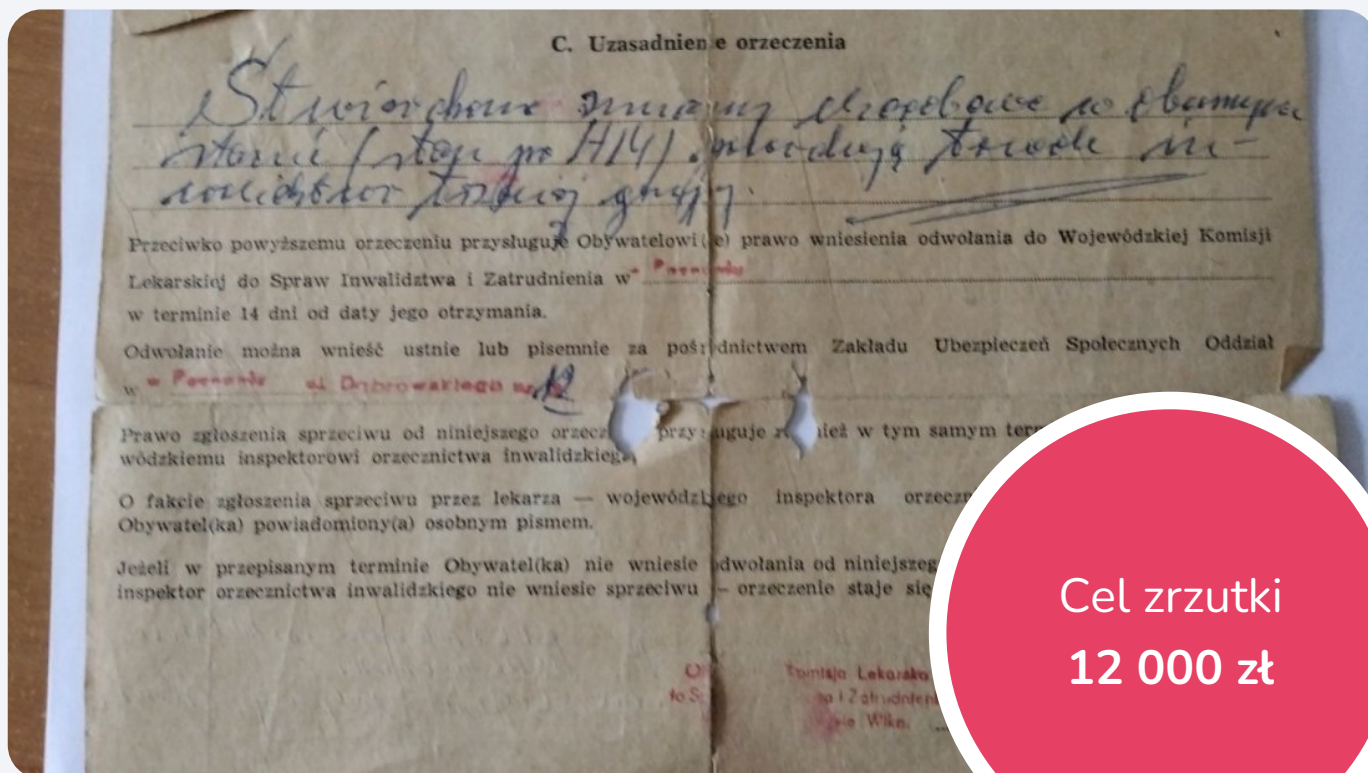 C. Uzasadnienie orzeczenia
Stwierdzone zmiany chorobowe w obecnym
stanie (stan po H14) powodują trwałe in-
walidztwo trzeciej grupy.
Przeciwko powyższemu orzeczeniu przysługuje Obywatelowi(e) prawo wniesienia odwołania do Wojewódzkiej Komisji
Lekarskiej do Spraw Inwalidztwa i Zatrudnienia w Poznaniu
w terminie 14 dni od daty jego otrzymania.
Odwołanie można wnieść ustnie lub pisemnie za pośrednictwem Zakładu Ubezpieczeń Społecznych Oddział
w w Poznaniu ul. Dąbrowskiego 12
Prawo zgłoszenia sprzeciwu od niniejszego orzecz przysługuje również w tym samym ter
wódzkiemu inspektorowi orzecznictwa inwalidzkieg
O fakcie zgłoszenia sprzeciwu przez lekarza — wojewódzkiego inspektora orzeczn
Obywatel(ka) powiadomiony(a) osobnym pismem.
Jeżeli w przepisanym terminie Obywatel(ka) nie wniesie odwołania od niniejszeg
inspektor orzecznictwa inwalidzkiego nie wniesie sprzeciwu — orzeczenie staje się
Komisja Lekarska
i Zatrudnieni
Wlkp.
Cel zrzutki
12 000 zł